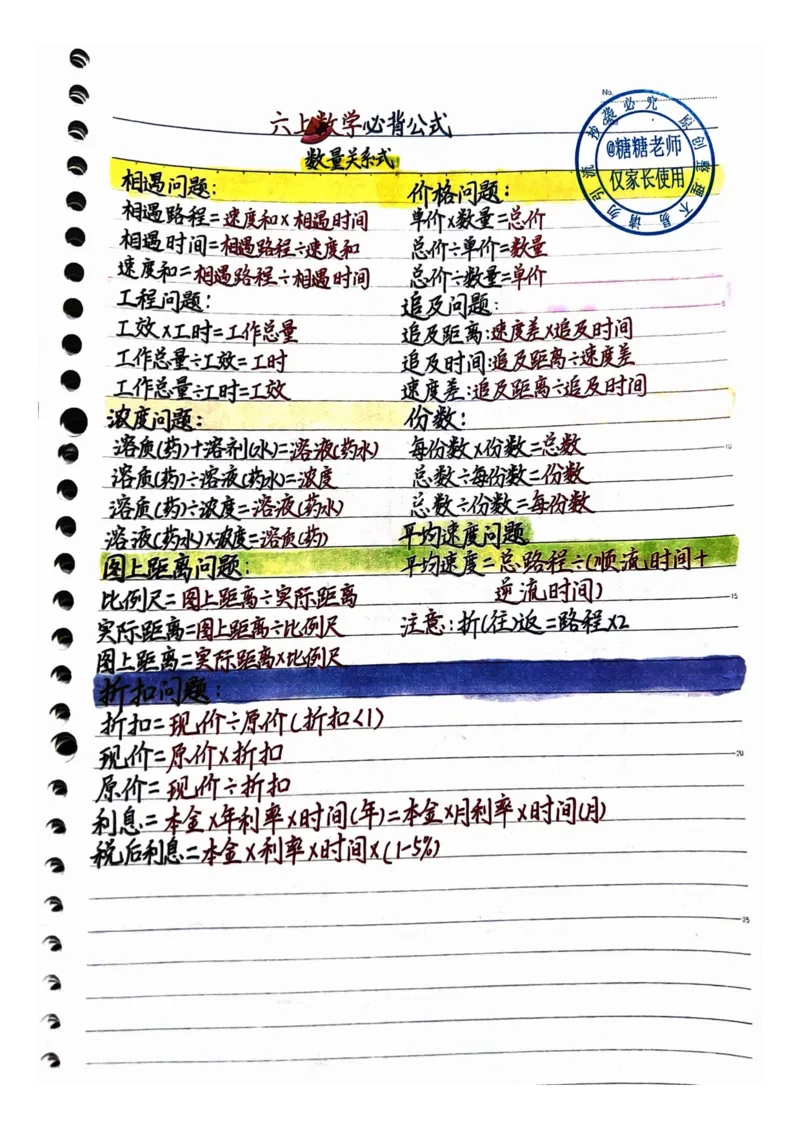 No.
六上数学必背公式
数量关系式
抄袭必究 原创整理不易 请勿引流
@糖糖老师
仅家长使用
相遇问题:
相遇路程=速度和×相遇时间
相遇时间=相遇路程÷速度和
速度和=相遇路程÷相遇时间
工程问题:
工效×工时=工作总量
工作总量÷工效=工时
工作总量÷工时=工效
浓度问题:
溶质(药)+溶剂(水)=溶液(药水)
溶质(药)÷溶液(药水)=浓度
溶质(药)÷浓度=溶液(药水)
溶液(药水)×浓度=溶质(药)
图上距离问题:
比例尺=图上距离÷实际距离
实际距离=图上距离÷比例尺
图上距离=实际距离×比例尺
价格问题:
单价×数量=总价
总价÷单价=数量
总价÷数量=单价
追及问题:
追及距离:速度差×追及时间
追及时间:追及距离÷速度差
速度差:追及距离÷追及时间
份数:
每份数×份数=总数
总数÷每份数=份数
总数÷份数=每份数
平均速度问题
平均速度=总路程÷(顺流时间+
逆流时间)
注意:折(往)返=路程×2
折扣问题:
折扣=现价÷原价(折扣<1)
现价=原价×折扣
原价=现价÷折扣
利息=本金×年利率×时间(年)=本金×月利率×时间(月)
税后利息=本金×利率×时间×(1-5%)
5
10
15
20
25